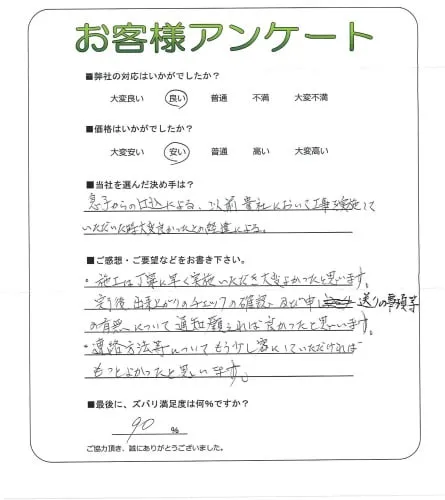 お客様アンケート
■弊社の対応はいかがでしたか?
大変良い 良い 普通 不満 大変不満
■価格はいかがでしたか?
大変安い 安い 普通 高い 大変高い
■当社を選んだ決め手は?
息子からの による、以前貴社において工事実施して
いただいた時大変良かったとの経違による。
■ご感想・ご要望などをお書き下さい。
・施工は丁寧に早く実施いただき大変よかったと思います。
完了後 出来上がりのチェックの確認、及び申し送りの事項等
の有無について通知願えれば良かったと思います。
・連絡方法等についてもう少し密にしていただければ
もっとよかったと思います。
■最後に、ズバリ満足度は何%ですか?
90 %
ご協力頂き、誠にありがとうございました。